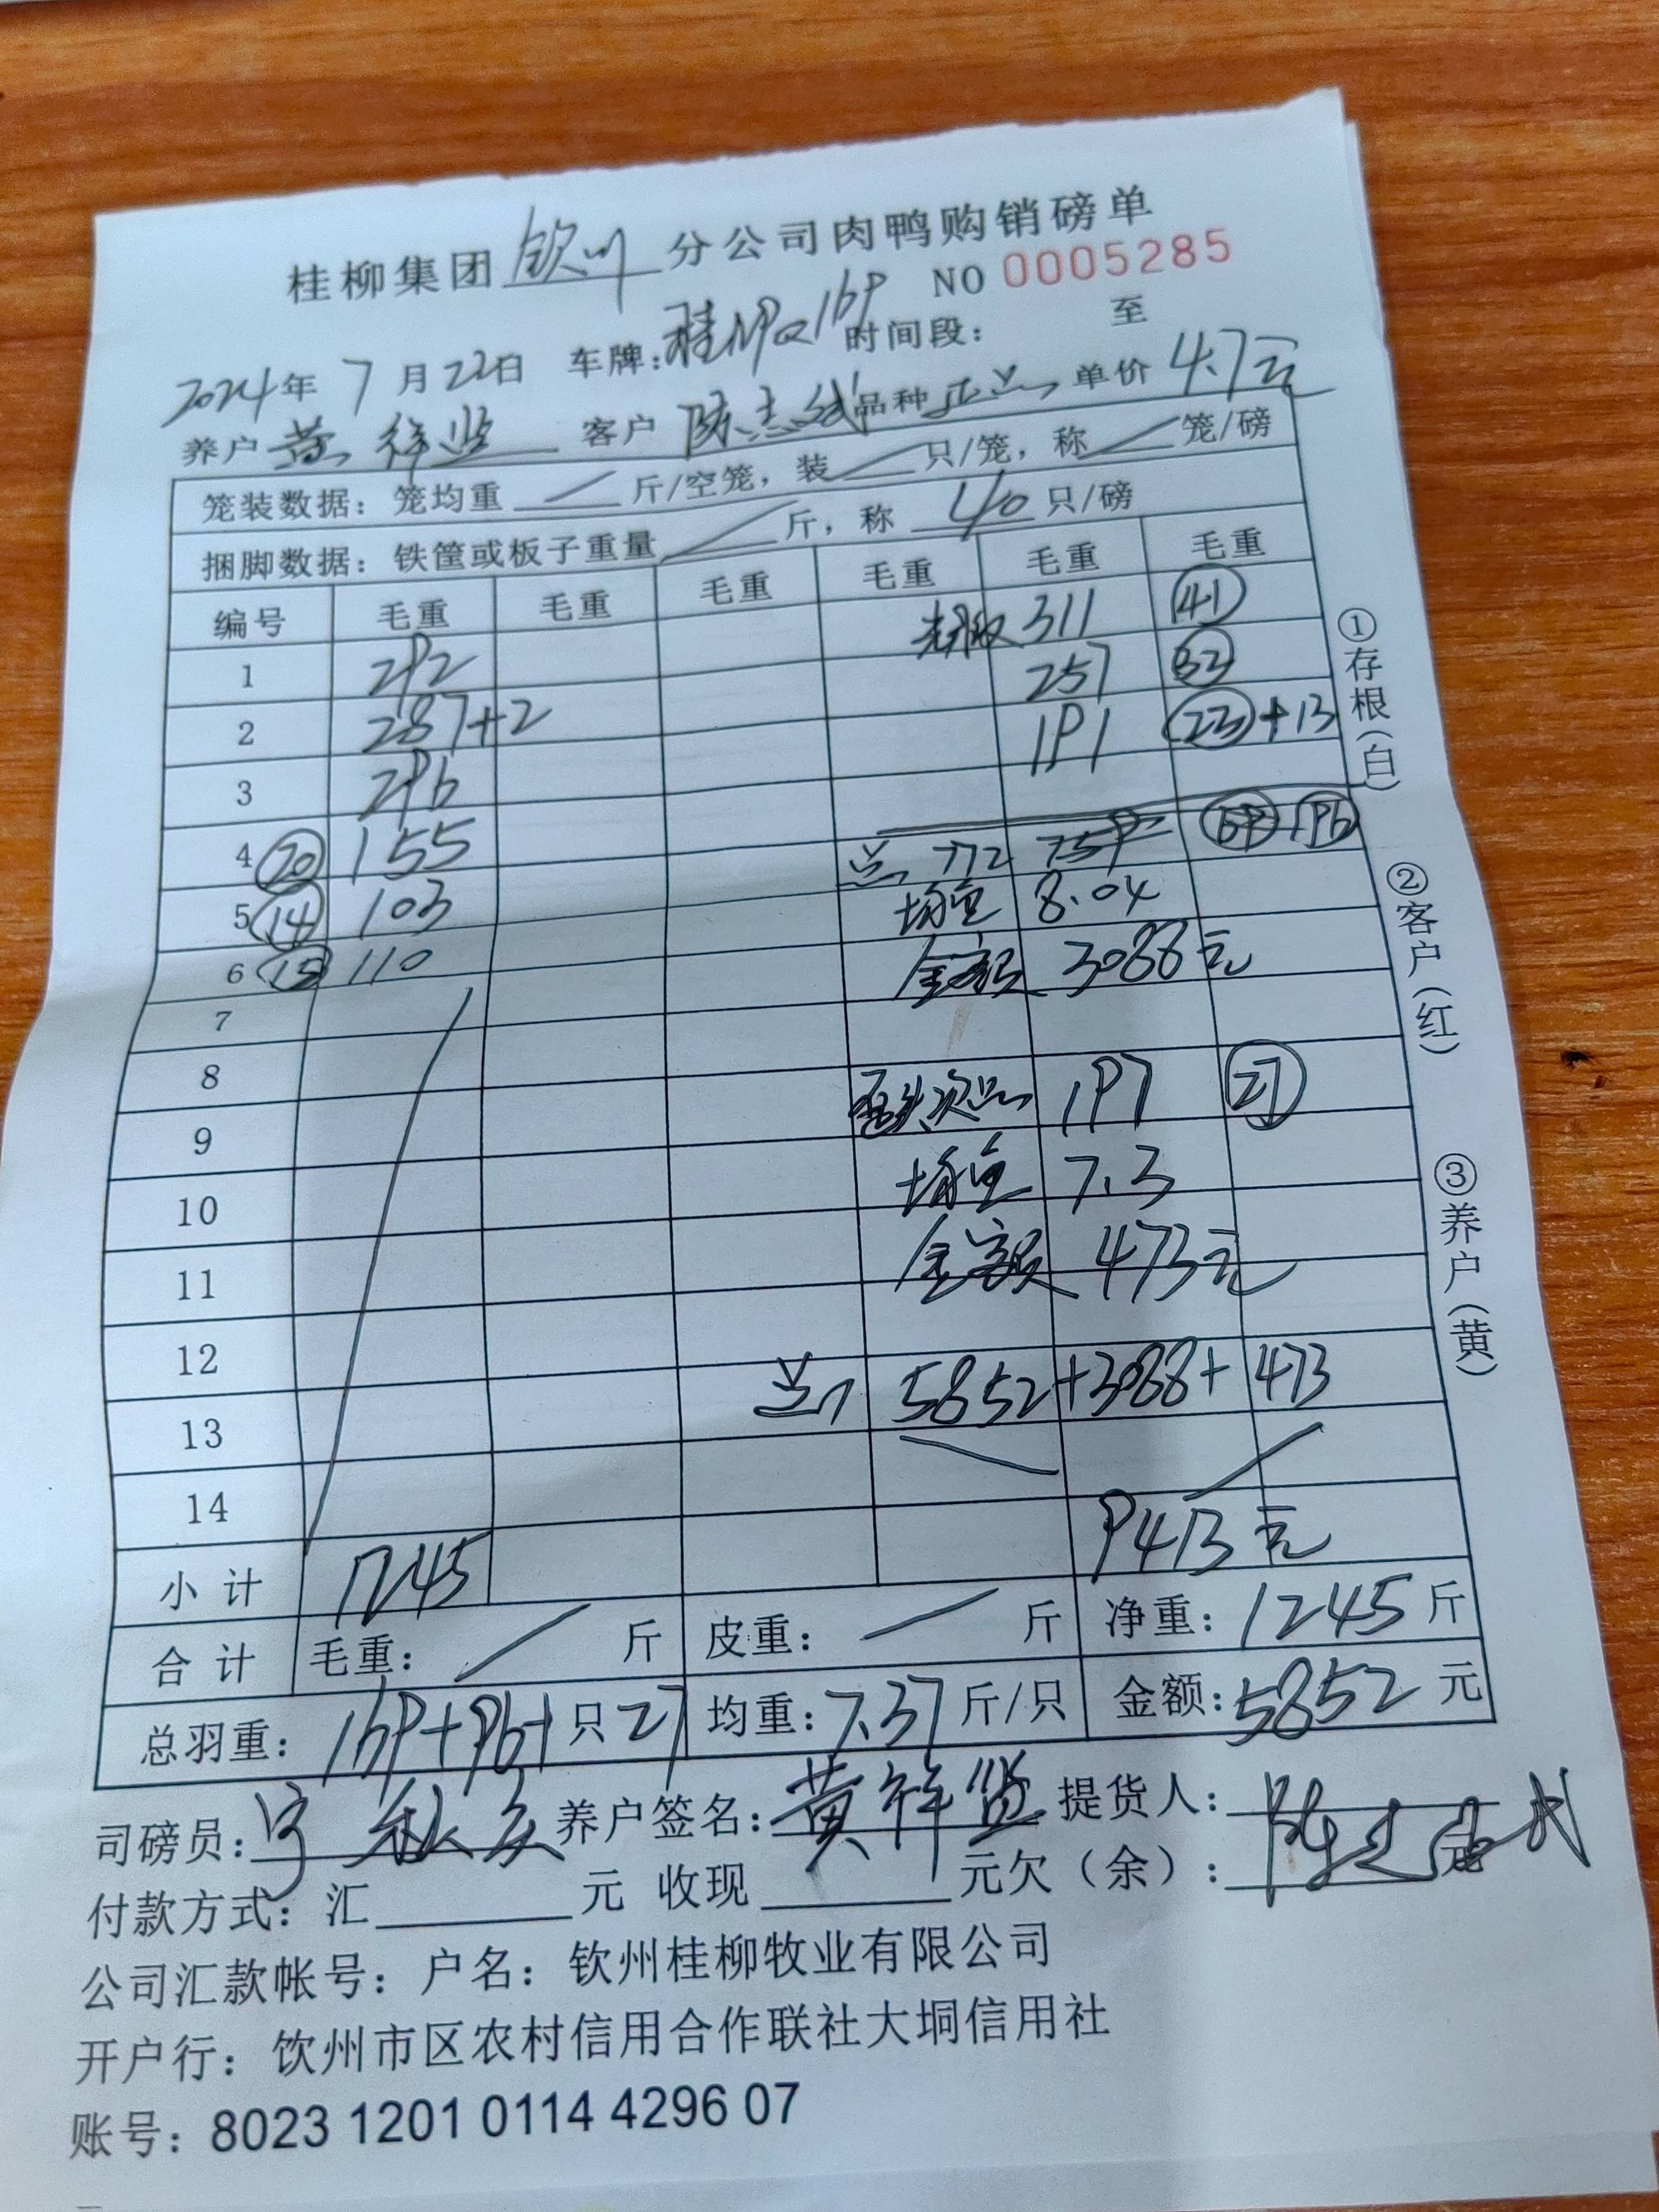 桂柳集团 钦州 分公司肉鸭购销磅单
NO 0005285
2024年 7 月 22日 车牌: 时间段: 至
养户 黄祥 客户 陈志 品种 正品 单价 4.7元
笼装数据: 笼均重 / 斤/空笼, 装 / 只/笼, 称 / 笼/磅
捆脚数据: 铁筐或板子重量 / 斤, 称 40 只/磅
编号 毛重 毛重 毛重 毛重 毛重 毛重
311 41
1 292 257 32
2 287+2 191 23+13
3 296
4 20 155 总 772 759 69 96
5 14 103 均重 8.04
6 15 110 金额 3088元
7
8 次品 197 27
9 均重 7.3
10 金额 473元
11
12 总 5852+3088+473
13
14 9413元
小计 1245
合计 毛重: / 斤 皮重: / 斤 净重: 1245 斤
总羽重: 169+96+ 只 27 均重: 7.37 斤/只 金额: 5852 元
司磅员: 养户签名: 黄祥 提货人: 陈志
付款方式: 汇 元 收现 元欠(余): 元
公司汇款帐号: 户名: 钦州桂柳牧业有限公司
开户行: 钦州市区农村信用合作联社大垌信用社
账号: 8023 1201 0114 4296 07
①存根(白)
②客户(红)
③养户(黄)